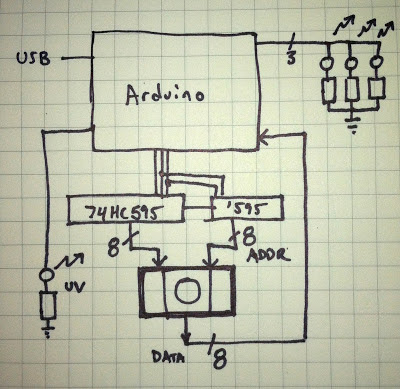 USB
Arduino
3
74HC595
'595
8
8
ADDR
UV
DATA
8